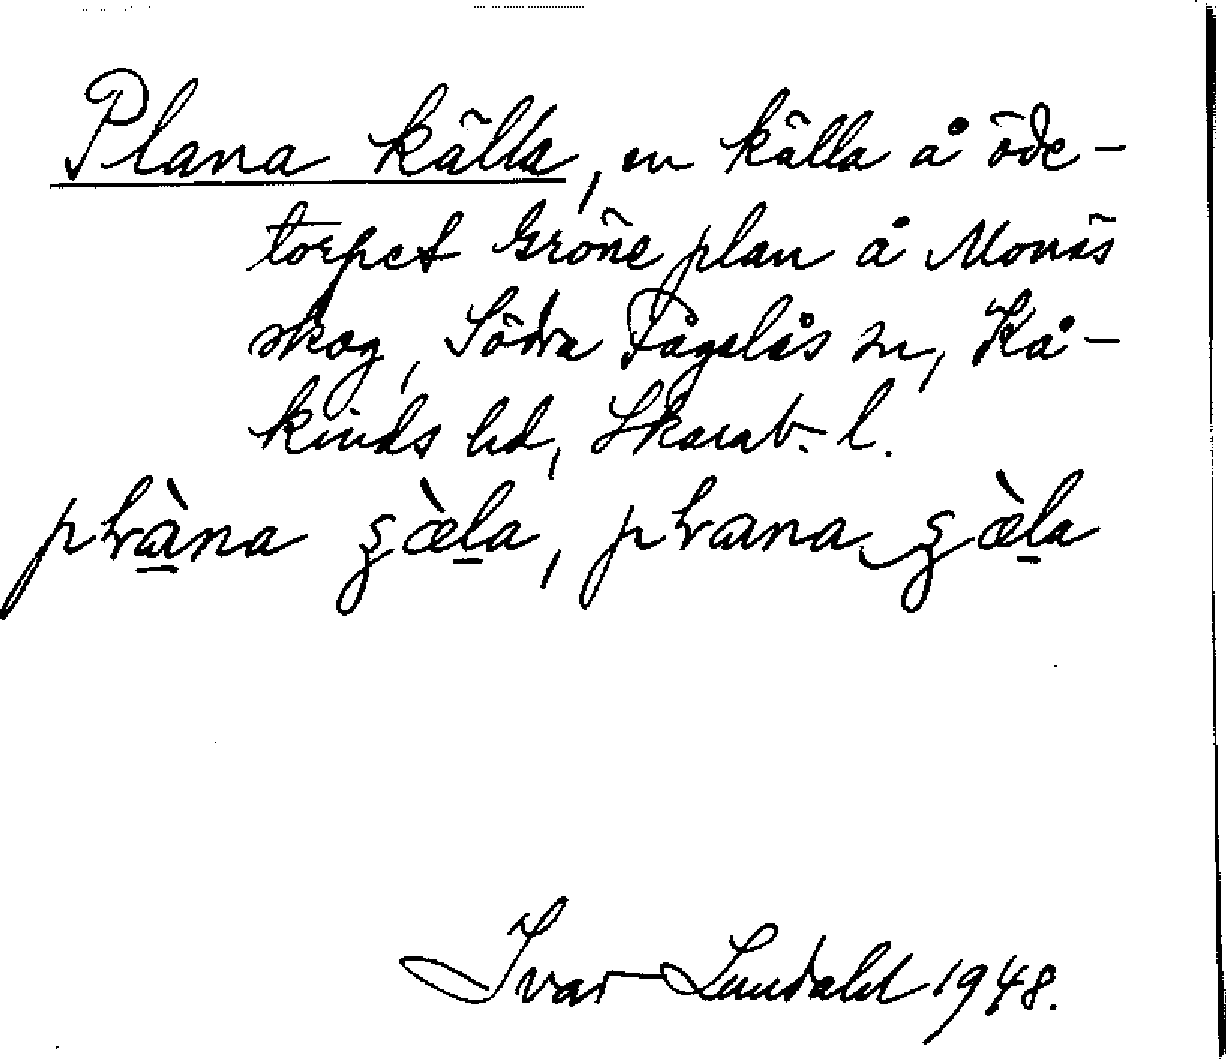 Plana källa, en källa å öde-
torpet Gröne plan å Monäs
skog, Södra Fågelås sn, Kå-
kinds hd, Skarab. l.
Ivar Lundahl 1948.